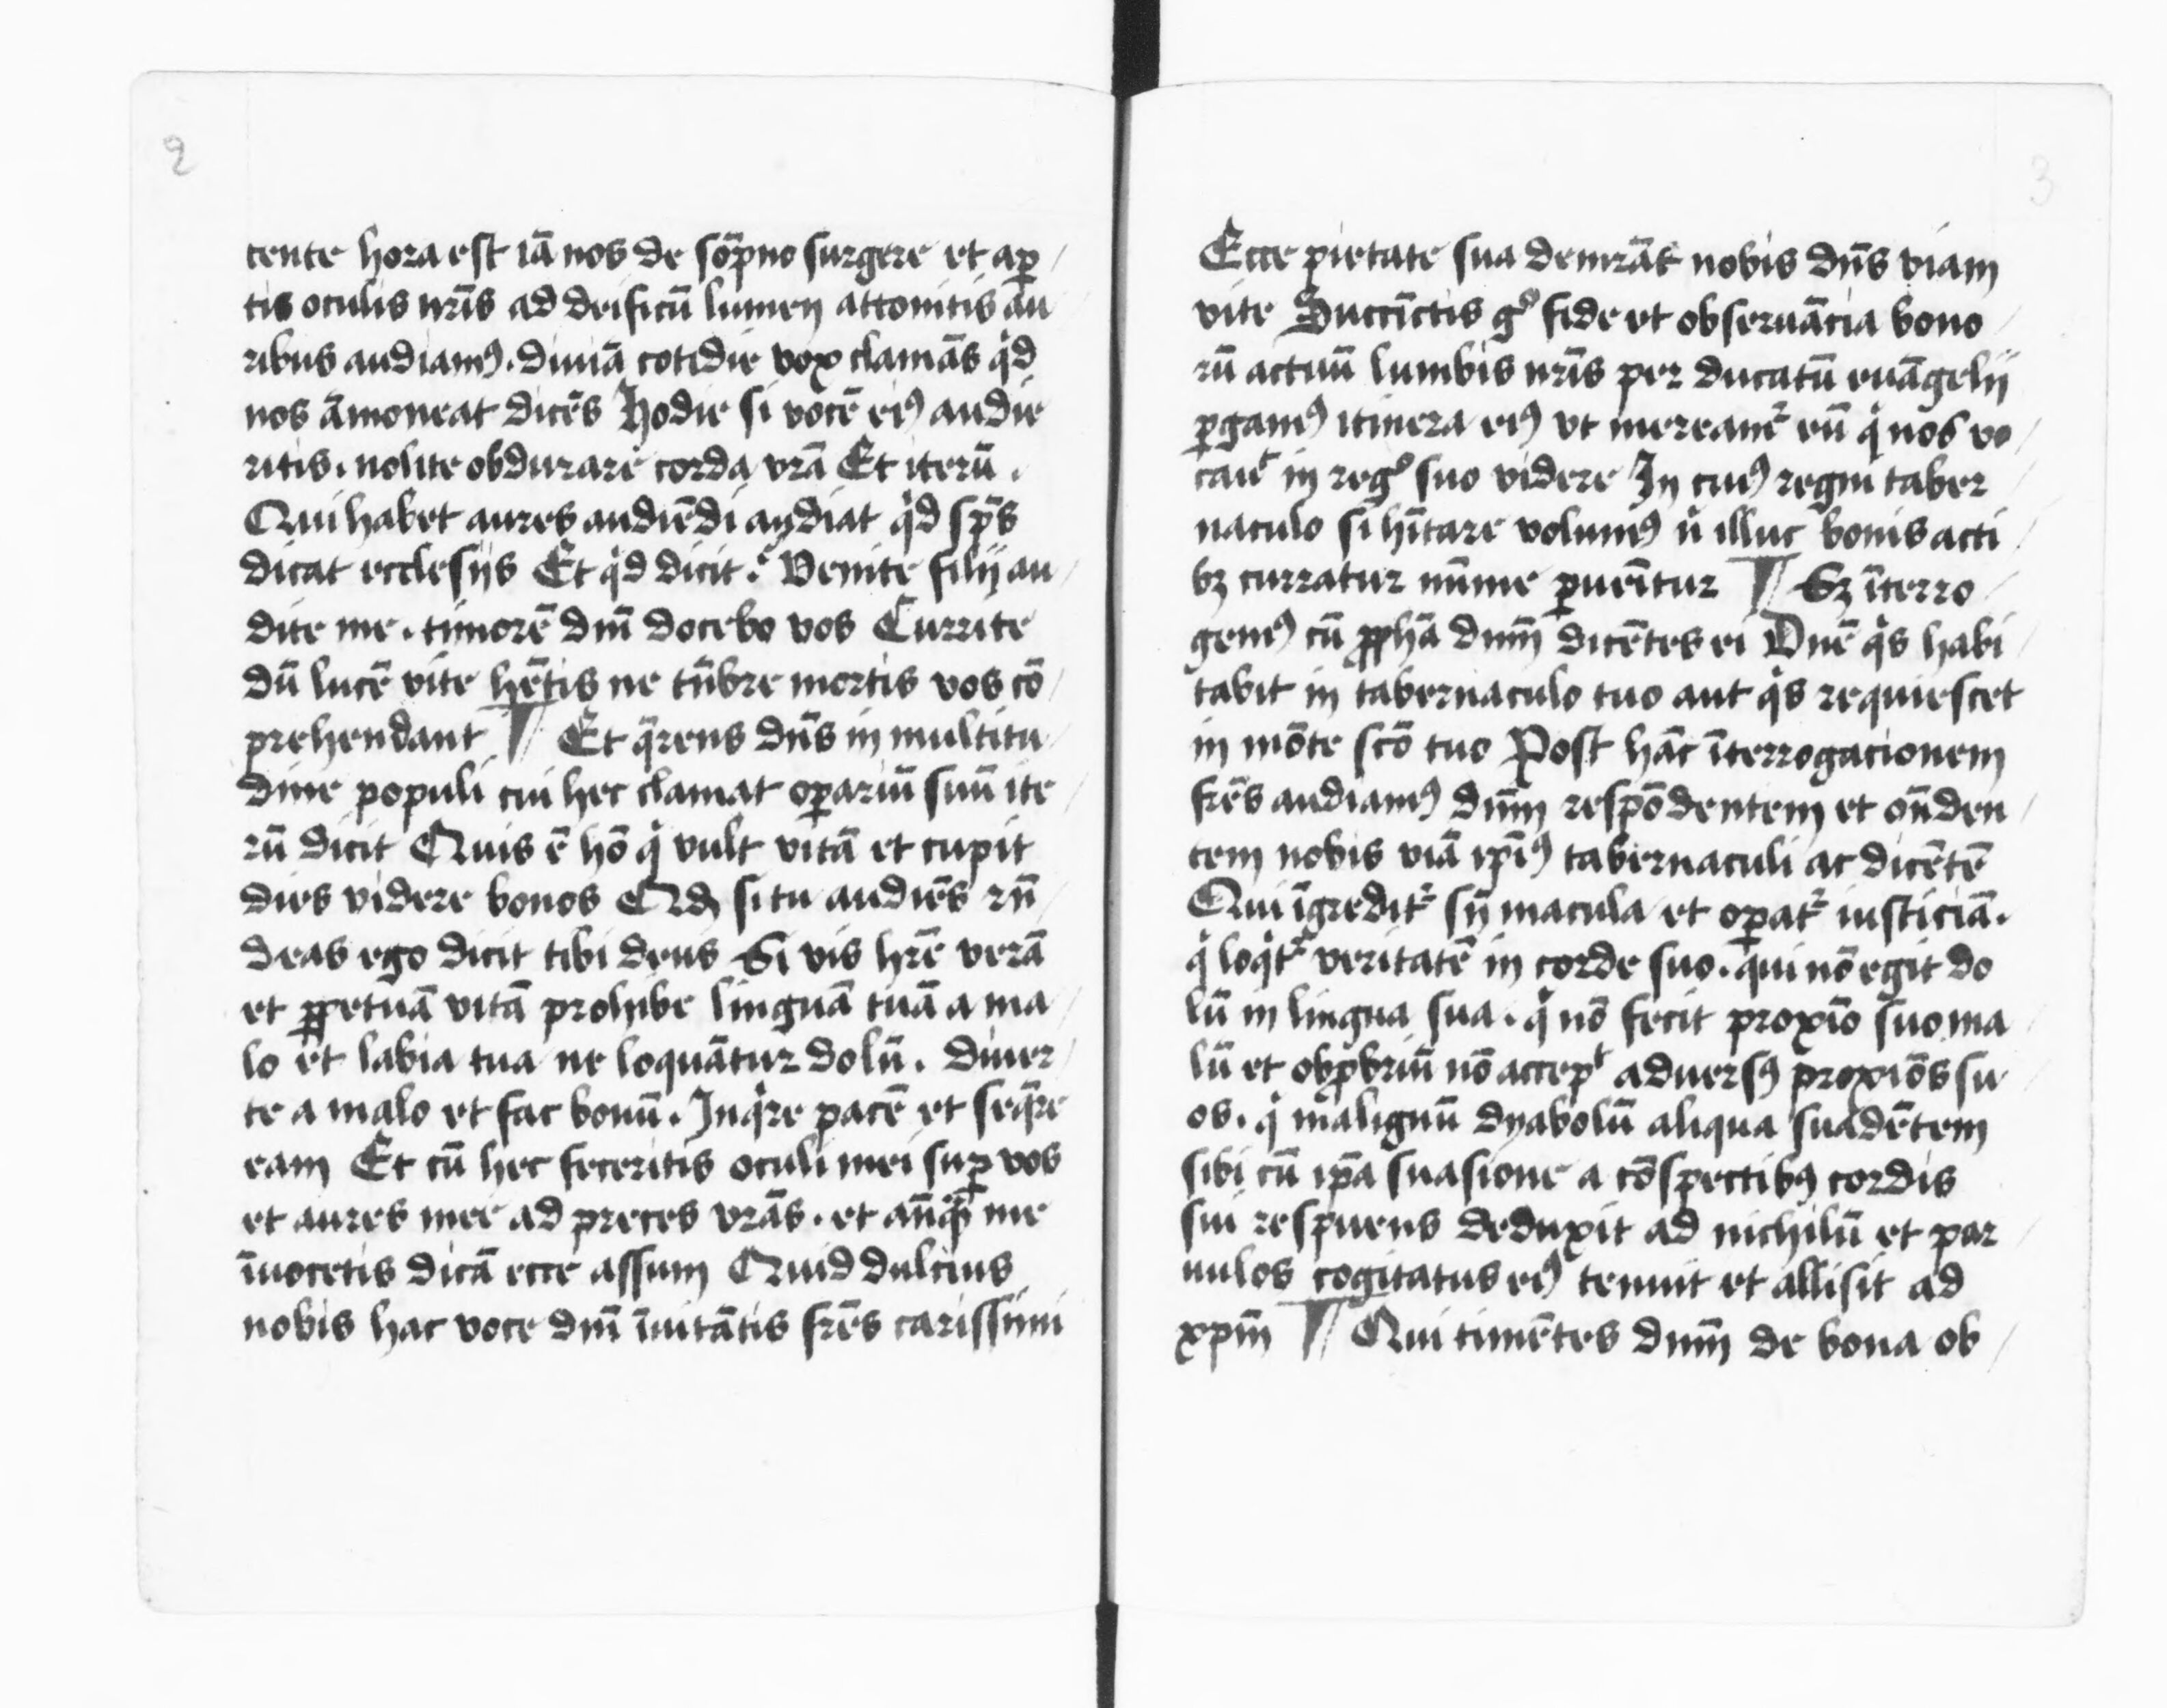 2
cente hora est iā nos de sōpno surgere et aꝑ
tis oculis nr̄is ad deificū lumen attonitis au
ribus audiamꝰ. diuīa cotidie vox clamās qͥd
nos āmoneat dicēs Hodie si vocē eiꝰ audie
ritis. nolite obdurare corda vr̄a Et iterū.
Qui habet aures audiēdi audiat qͥd sp̄s
dicat ecclesijs Et qͥd dicit.ͨ Venite filij au
dite me. timorē dn̄i docebo vos Currite
dū lucē vite hētis ne tn̄bre mortis vos cō
prehendant ¶ Et q̄rens dn̄s in multitu
dine populi cui hec clamat oꝑariū suū ite
rū dicit Quis ē hō qͥ vult vitā et cupit
dies videre bonos Qd̛ si tu audiēs rn̄
deas ego dicit tibi deus Si vis hr̄e verā
et ꝑpetuā vitā prohibe linguā tuā a ma
lo et labia tua ne loquātur dolū. diuer
te a malo et fac bonū. Inqͥre pacē et seq̄re
eam Et cū hec feceritis oculi mei suꝑ vos
et aures mee ad preces vr̄as. et an̄qͣ̄ me
īuocetis dicā ecce assum Quid dulcius
nobis hac voce dn̄i īuitātis fr̄es carissimi
3
Ecce pietate sua demr̄at nobis dn̄s viam
vite Succīctis gͦ fide et obseruācia bono
rū actuū lumbis nr̄is per ducatū euāgelij
ꝑgamꝰ itinera eiꝰ vt mereamr̄ eū qͥ nos vo
cauͭ in regͦ suo videre In cuiꝰ regni taber
naculo si hītare volumꝰ nͥ illuc bonis acti
bꝫ curratur mīme ꝑueītur ¶ Sꝫ īterro
gemꝰ cū ꝓpha dn̄m dicētes ei Dn̄e qͥs habi
tabit in tabernaculo tuo aut qͥs requiescet
in mōte scō tuo Post hāc īterrogacionem
fr̄es audiamꝰ dn̄m respōdentem et on̄den
tem nobis viā ip̄iꝰ tabernaculi ac dicētē
Qui īgreditͬ sn̄ macula et oꝑatͬ iusticiā.
qͥ loqͥtͬ veritatē in corde suo. qui nō egit do
lū in lingua sua. qͥ nō fecit proxīo suo ma
lū et obꝓbriū nō accepͭ aduersꝰ proxīos su
os. qͥ malignū dyabolū aliqua suadētem
sibi cū ip̄a suasione a cōspectibꝰ cordis
sui respuens deduxit ad nichilū et par
uulos cogitatus eiꝰ tenuit et allisit ad
xp̄m ¶ Qui timētes dn̄m de bona ob